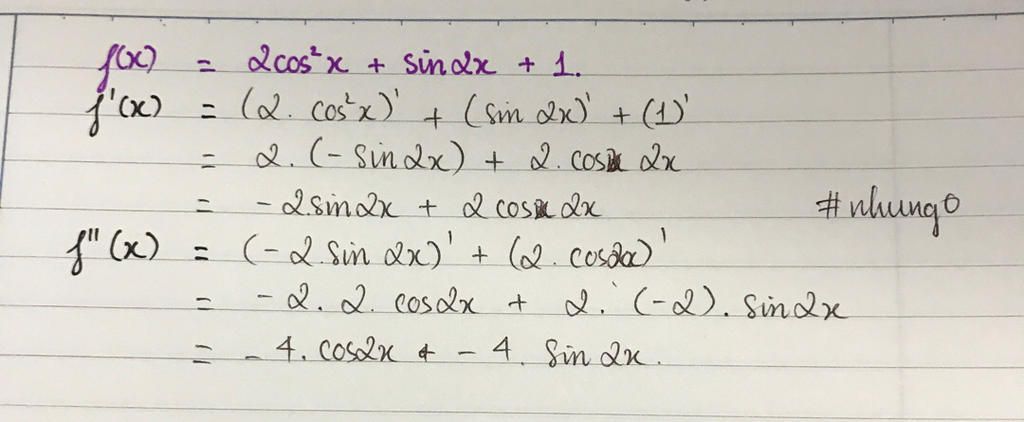 f(x) = 2cos²x + sin2x + 1.
f'(x) = (2. cos²x)' + (sin 2x)' + (1)'
= 2. (- sin2x) + 2. cos 2x
= - 2.sin2x + 2 cos 2x #nhung0
f''(x) = (- 2.sin 2x)' + (2. cos2x)'
= - 2. 2. cos2x + 2. (-2). sin2x
= - 4. cos2x + - 4. sin 2x.